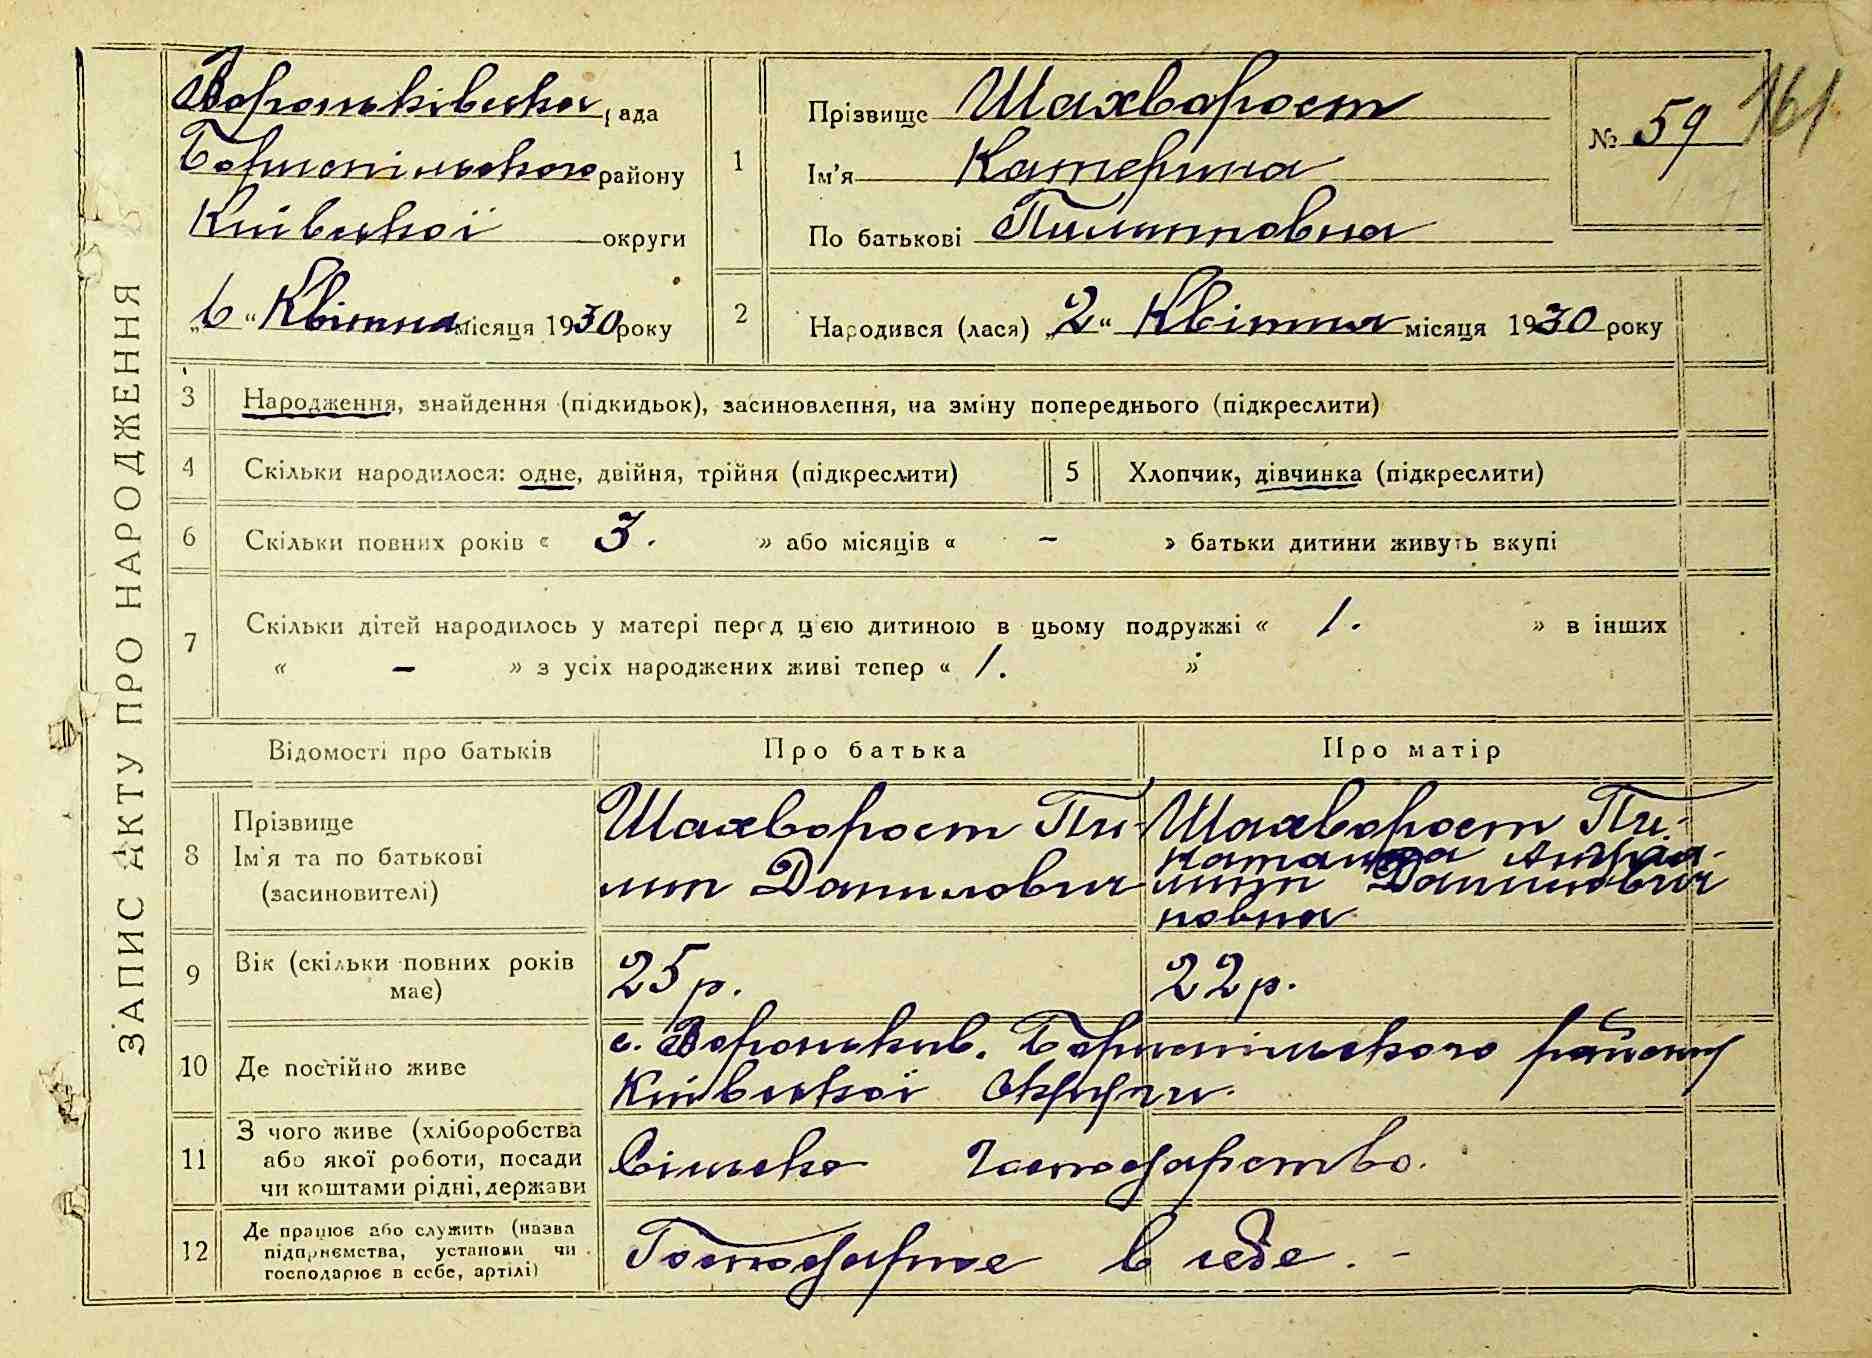 ЗАПИС АКТУ ПРО НАРОДЖЕННЯ
Вороньківська рада
Бориспільського району
Київської округи
„6“ Квітня місяця 1930 року
1
Прізвище Шахворост
Ім'я Катерина
По батькові Пилиповна
№ 59
161
2
Народився (лася) „2“ Квітня місяця 1930 року
3 Народження, знайдення (підкидьок), засиновлення, на зміну попереднього (підкреслити)
4 Скільки народилося: одне, двійня, трійня (підкреслити)
5 Хлопчик, дівчинка (підкреслити)
6 Скільки повних років « 3. » або місяців « - » батьки дитини живуть вкупі
7 Скільки дітей народилось у матері перед цією дитиною в цьому подружжі « 1. » в інших
« - » з усіх народжених живі тепер « 1. »
Відомості про батьків Про батька Про матір
8 Прізвище
Ім'я та по батькові
(засиновителі)
Шахворост Пи-
лип Данилович
Шахворост Пи-
наталка Андріа-
лип Данилович
новна
9 Вік (скільки повних років
має)
25 р. 22 р.
10 Де постійно живе
с. Вороньків. Бориспільського району
Київської Округи.
11 З чого живе (хліборобства
або якої роботи, посади
чи коштами рідні, держави
Сільско Господарство.
12 Де працює або служить (назва
підприємства, установи чи
господарює в себе, артілі)
Господарює в себе. -